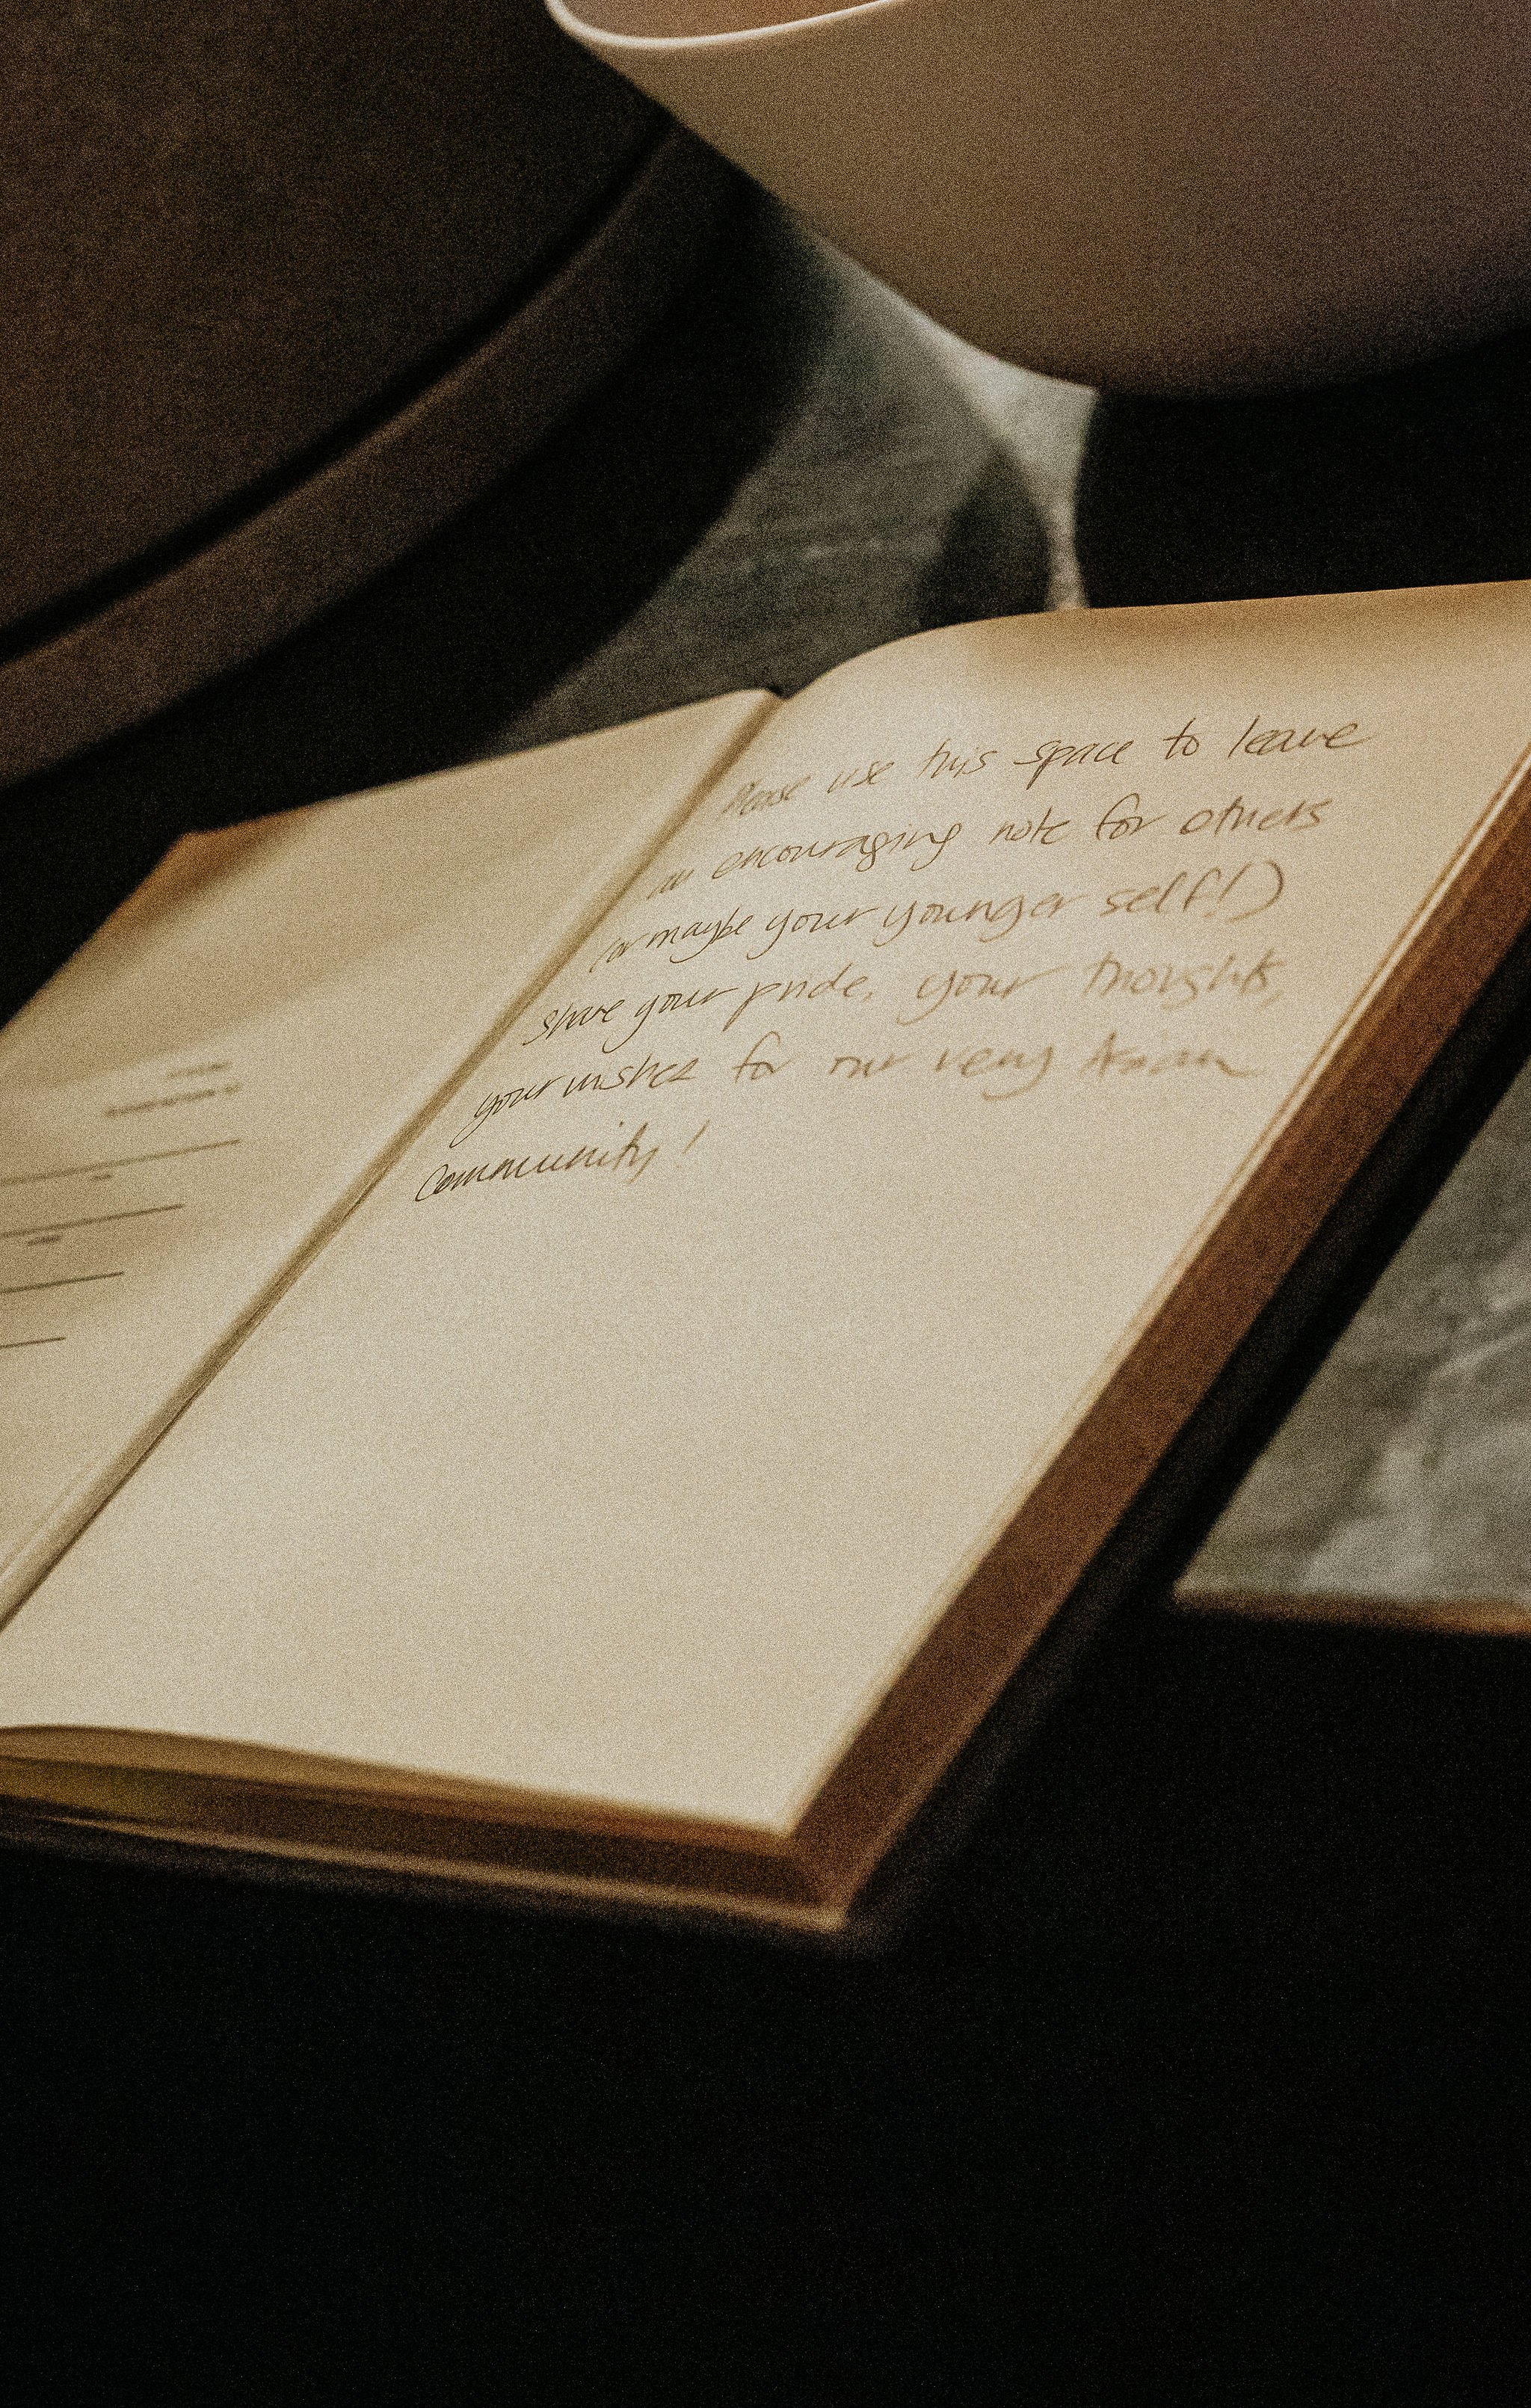 Please use this space to leave
an encouraging note for others
(or maybe your younger self!)
Share your pride, your thoughts,
your wishes for our very Asian
Community!